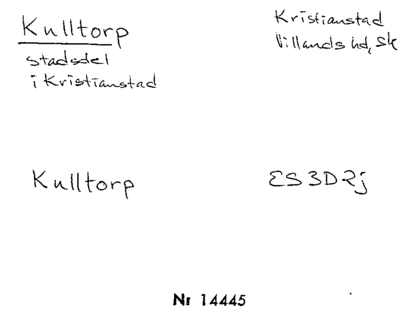 Kulltorp
stadsdel
i Kristianstad
Kristianstad
Villands hd, Sk
Kulltorp
ES3D2j
Nr 14445